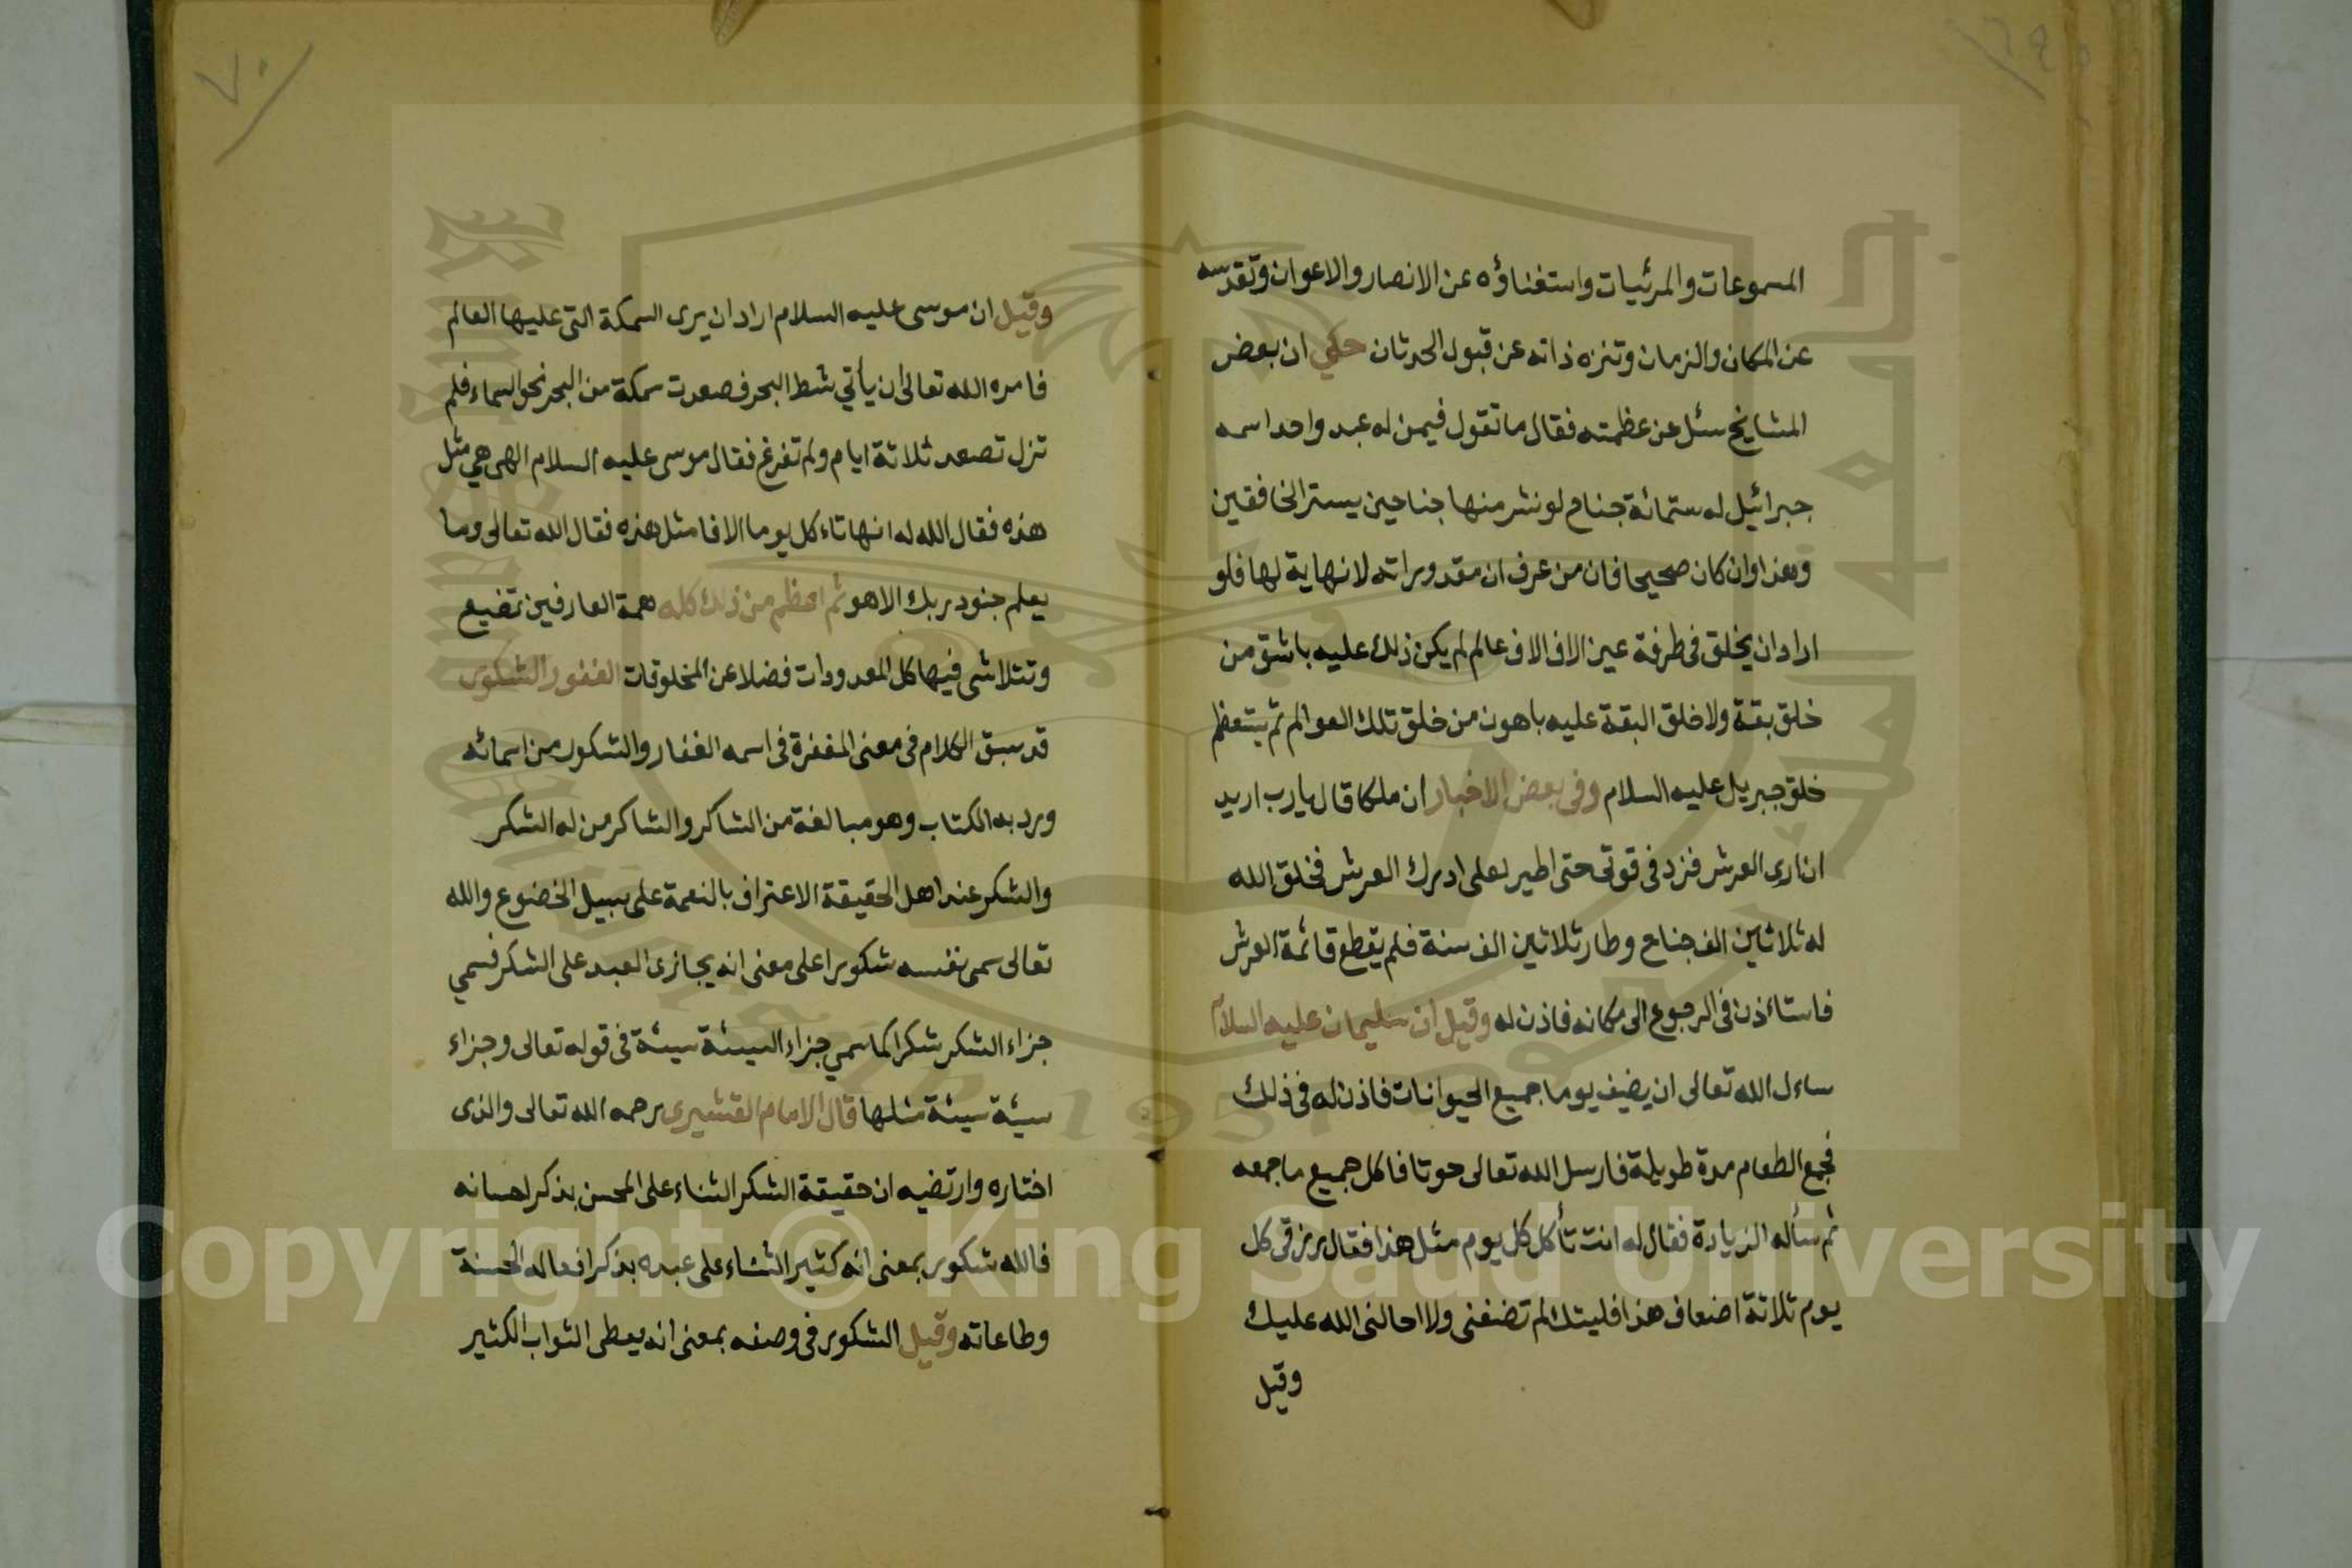 المسموعات والمرئيات واستغناؤه عن الانصار والاعوان وتقدسه
عن المكان والزمان وتنزه ذاته عن قبول الحدثان حكي ان بعض
المشايخ سئل عن عظمته فقال ما تقول فيمن له عبد واحد اسمه
جبرائيل له ستمائة جناح لو نشر منها جناحين يستر الخافقين
وهذا وان كان صحيحا فان من عرف ان مقدوراته لا نهاية لها فلو
اراد ان يخلق في طرفة عين الاف الاف عالم لم يكن ذلك عليه باشق من
خلق بقة ولا خلق البقة عليه باهون من خلق تلك العوالم ثم يتعظم
خلق جبريل عليه السلام وفى بعض الاخبار ان ملكا قال يا رب اريد
ان ارى العرش فزد في قوتى حتى اطير لعلى ادرك العرش فخلق الله
له ثلاثين الف جناح وطار ثلاثين الف سنة فلم يقطع قائمة العرش
فاستاءذن فى الرجوع الى مكانه فاذن له وقيل ان سليمان عليه السلام
ساءل الله تعالى ان يضيف يوما جميع الحيوانات فاذن له فى ذلك
فجمع الطعام مدة طويلة فارسل الله تعالى حوتا فاكل جميع ما جمعه
ثم سأله الزيادة فقال له انت تأكل كل يوم مثل هذا فقال رزقى كل
يوم ثلاثة اضعاف هذا فليتك لم تضفنى ولا احالنى الله عليك
وقيل
٧٠
وقيل ان موسى عليه السلام اراد ان يرى السمكة التى عليها العالم
فامره الله تعالى ان يأتي شط البحر فصعدت سمكة من البحر نحو السماء فلم
تزل تصعد ثلاثة ايام ولم تفرغ فقال موسى عليه السلام الهى هي مثل
هذه فقال الله له انها تاءكل يوما الافا مثل هذه فقال الله تعالى وما
يعلم جنود ربك الا هو ثم اعظم من ذلك كله همة العارفين تضيع
وتتلاشى فيها كل المعدودات فضلا عن المخلوقات الغفور الشكور
قد سبق الكلام فى معنى المغفرة فى اسمه الغفار والشكور من اسمائه
ورد به الكتاب وهو مبالغة من الشاكر والشاكر من له الشكر
والشكر عند اهل الحقيقة الاعتراف بالنعمة على سبيل الخضوع والله
تعالى سمى نفسه شكورا على معنى انه يجازى العبد على الشكر فسمي
جزاء الشكر شكرا كما سمي جزاء السيئة سيئة فى قوله تعالى وجزاء
سيئة سيئة مثلها قال الامام القشيرى رحمه الله تعالى والذى
اختاره وارتضيه ان حقيقة الشكر الثناء على المحسن بذكر احسانه
فالله شكور بمعنى انه كثير الثناء على عبده بذكر افعاله الحسنة
وطاعاته وقيل الشكور فى وصفه بمعنى انه يعطى الثواب الكثير
Copyright © King Saud University
1957